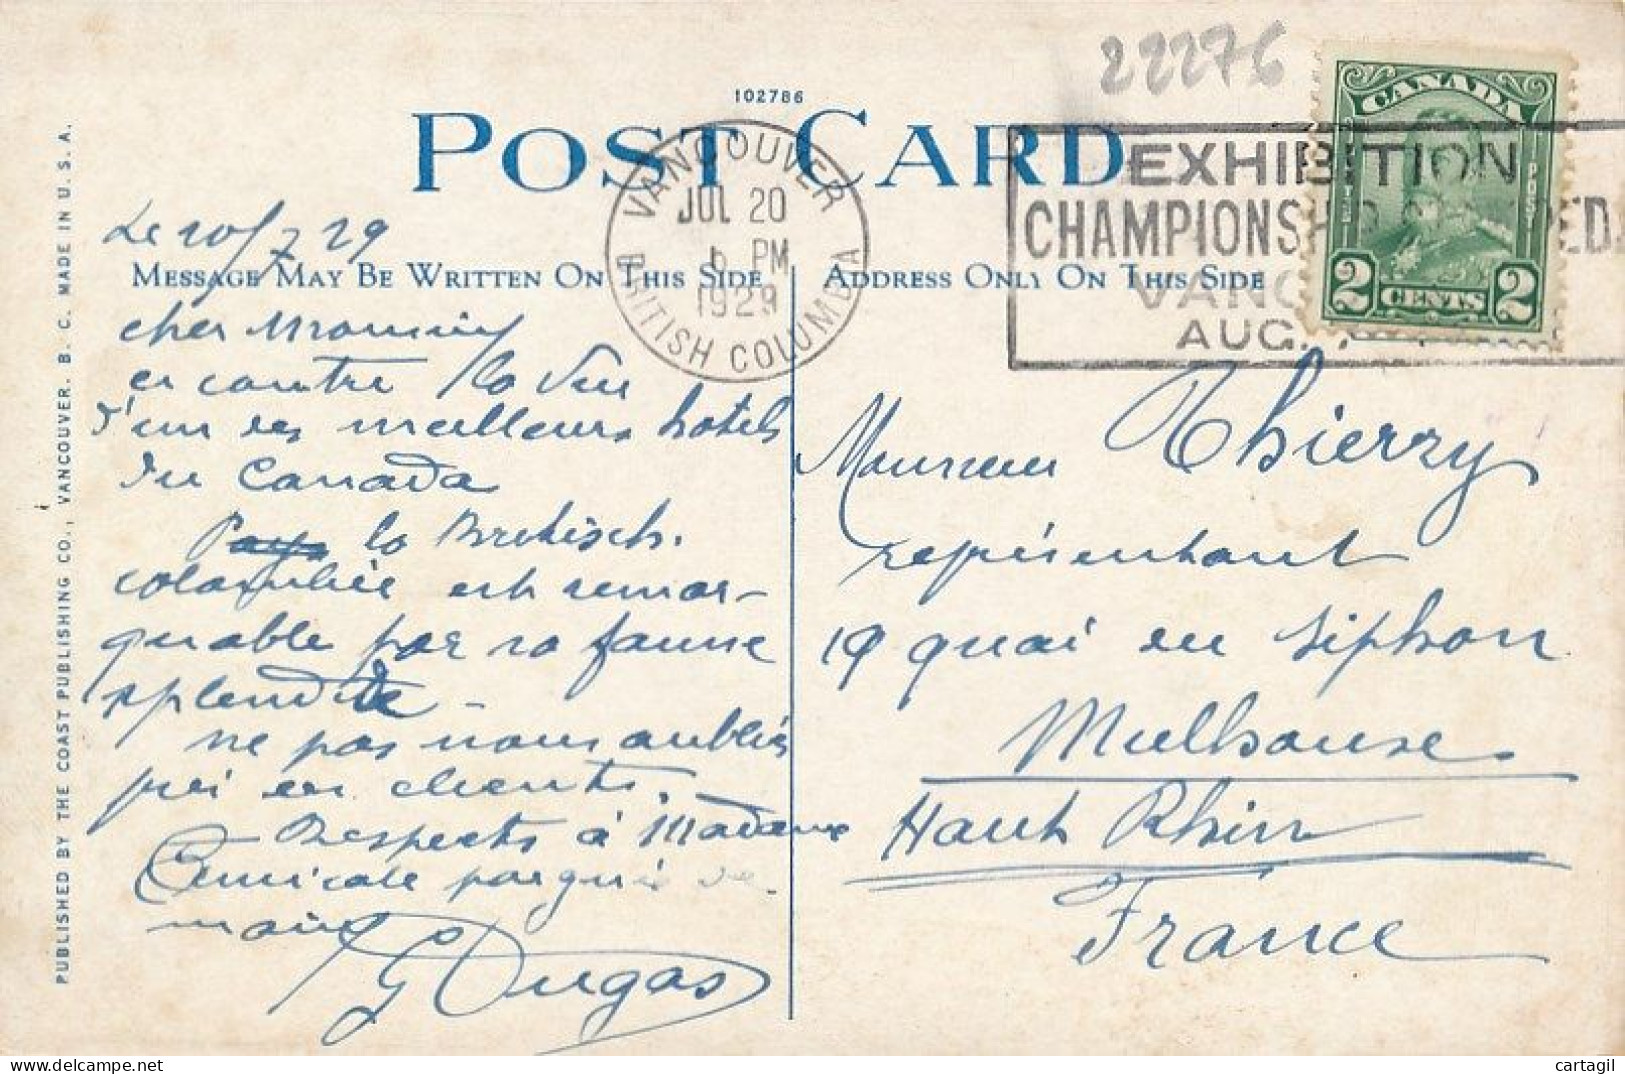 22276
102786
POST CARD
VANCOUVER
JUL 20
6 PM
1929
BRITISH COLUMBIA
EXHIBITION
CHAMPIONSH
VANC
AUG.
CANADA
2 CENTS 2
Le 20/7 29
MESSAGE MAY BE WRITTEN ON THIS SIDE
ADDRESS ONLY ON THIS SIDE
cher
ci contre la vue
d'un des meilleurs hotels
du Canada
la Bretisch.
colombie est remar-
quable par sa faune
splendide -
ne pas nous oublier
pr en clients.
Respects à Madame
Amicale poignée de
main
G Dugas
Monsieur Thierry
représentant
19 quai du siphon
Mulhouse
Haut Rhin
France
PUBLISHED BY THE COAST PUBLISHING CO., VANCOUVER, B. C. MADE IN U. S. A.
cartagil